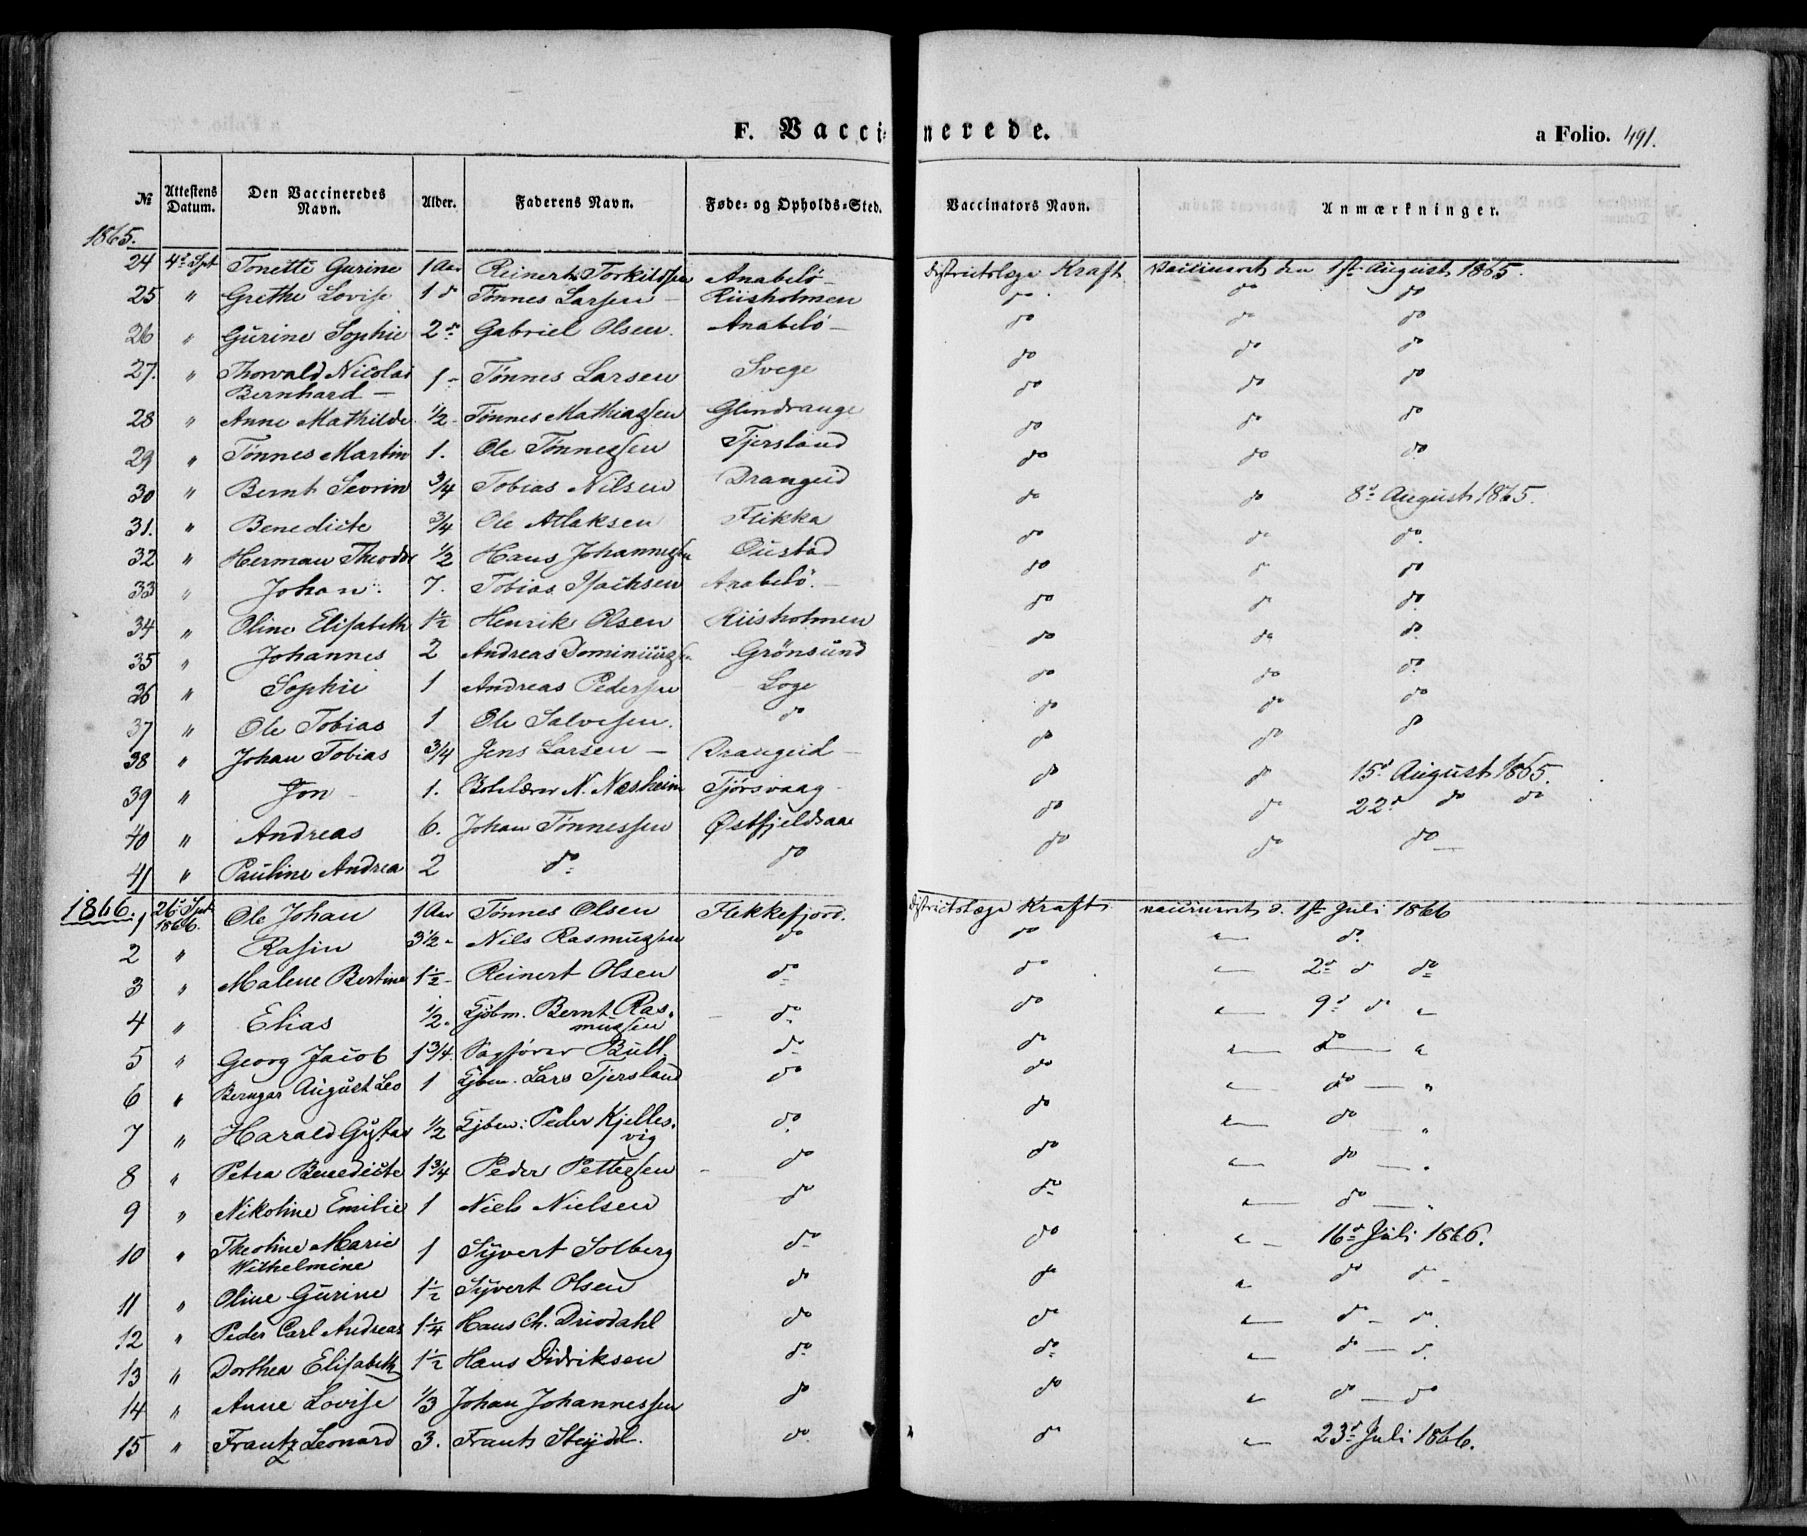 F. Vaccinerede.
a Folio. 491.
№ Attestens Datum. Den Vaccineredes Navn. Alder. Faderens Navn. Føde- og Opholds-Sted. Vaccinators Navn. Anmærkninger.
1865.
24 4de Spt Tonette Gurine 1 Aar Reinert Torkildsen Anabelö Districtslæge Kraft Vaccineret den 1ste August 1865.
25 " Grethe Lovise 1 do Tönnes Larsen — Riisholmen do do do
26 " Gurine Sophie 2 do Gabriel Olsen. Anabelö — do do do
27. " Thorvald Nicolai Bernhard — 1 - Tönnes Larsen Svege do do do
28 " Anne Mathilde 1/2 - Tönnes Mathiassen Glendrange do do do
29 " Tönnes Martin 1. Ole Tönnessen Tjersland do do do
30 " Bernt Sevrin 3/4 Tobias Nilsen Drangeid do do 8de August 1865.
31. " Benedicte 3/4 Ole Atlaksen Flikka do do do
32 " Herman Theodor 1/2 Hans Johannessen Oustad do do do
33 " Johan 7. Tobias Isachsen Anabelö. — do do do
34 " Oline Elisabeth 1 1/2 Henrik Olsen Riisholmen do do do
35 " Johannes 2 Andreas Dominicussen Grönsund do do do
36 " Sophie 1 Andreas Pedersen Loge do do do
37 " Ole Tobias 1 Ole Salvesen. do do do do
38 " Johan Tobias 3/4 Jens Larsen — Drangeid — do do 15de August 1865.
39 " Jon — 1. N. Næsheim Tjörsvaag do do 22de do do
40 " Andreas 6. Johan Tönnessen Østfjeldsaae do do do —
41 " Pauline Andrea 2 do do
1866. 1 26de Spt 1866. Ole Johan 1 Aar Tönnes Olsen Flekkefjord. Districtslæge Kraft vaccineret d. 1ste Juli 1866
2 " Rasin 3 1/2 - Nils Rasmussen do do " — do
3 " Malene Bertine 1 1/2 - Reinert Olsen do do " — 2de do do
4 " Elias 1/2 - Kjøbm. Bernt Rasmussen — do do " — 9de do "
5 " Georg Jacob 1 3/4 Sagfører Bull do do " — do — "
6 " August Leo 1 Kjbm. Lars Tjersland do do " — do — "
7 " Harald Gustav 1/2 Kjbm: Peder Kjellesvig do do " — do — "
8 " Petra Benedicte 1 3/4 Peder Pettersen — do do " — do — "
9 " Nikoline Emilie 1 Niels Nielsen do do " — do — "
10 " Theoline Marie Wilhelmine 1 Syvert Solberg do do " — 16de Juli 1866.
11 " Oline Gurine 1 1/2 Syvert Olsen do do " do do -
12 " Peder Carl Andreas 1 1/4 Hans Ch. Drivdahl do do " — do — do
13 " Dorthea Elisabeth 1 1/2 Hans Didriksen do do " — do — do
14 " Anne Lovise 1/3 Johan Johannessen do do " — do — do
15 " Frantz Leonard 3. Frants do do " — 23de Juli 1866.